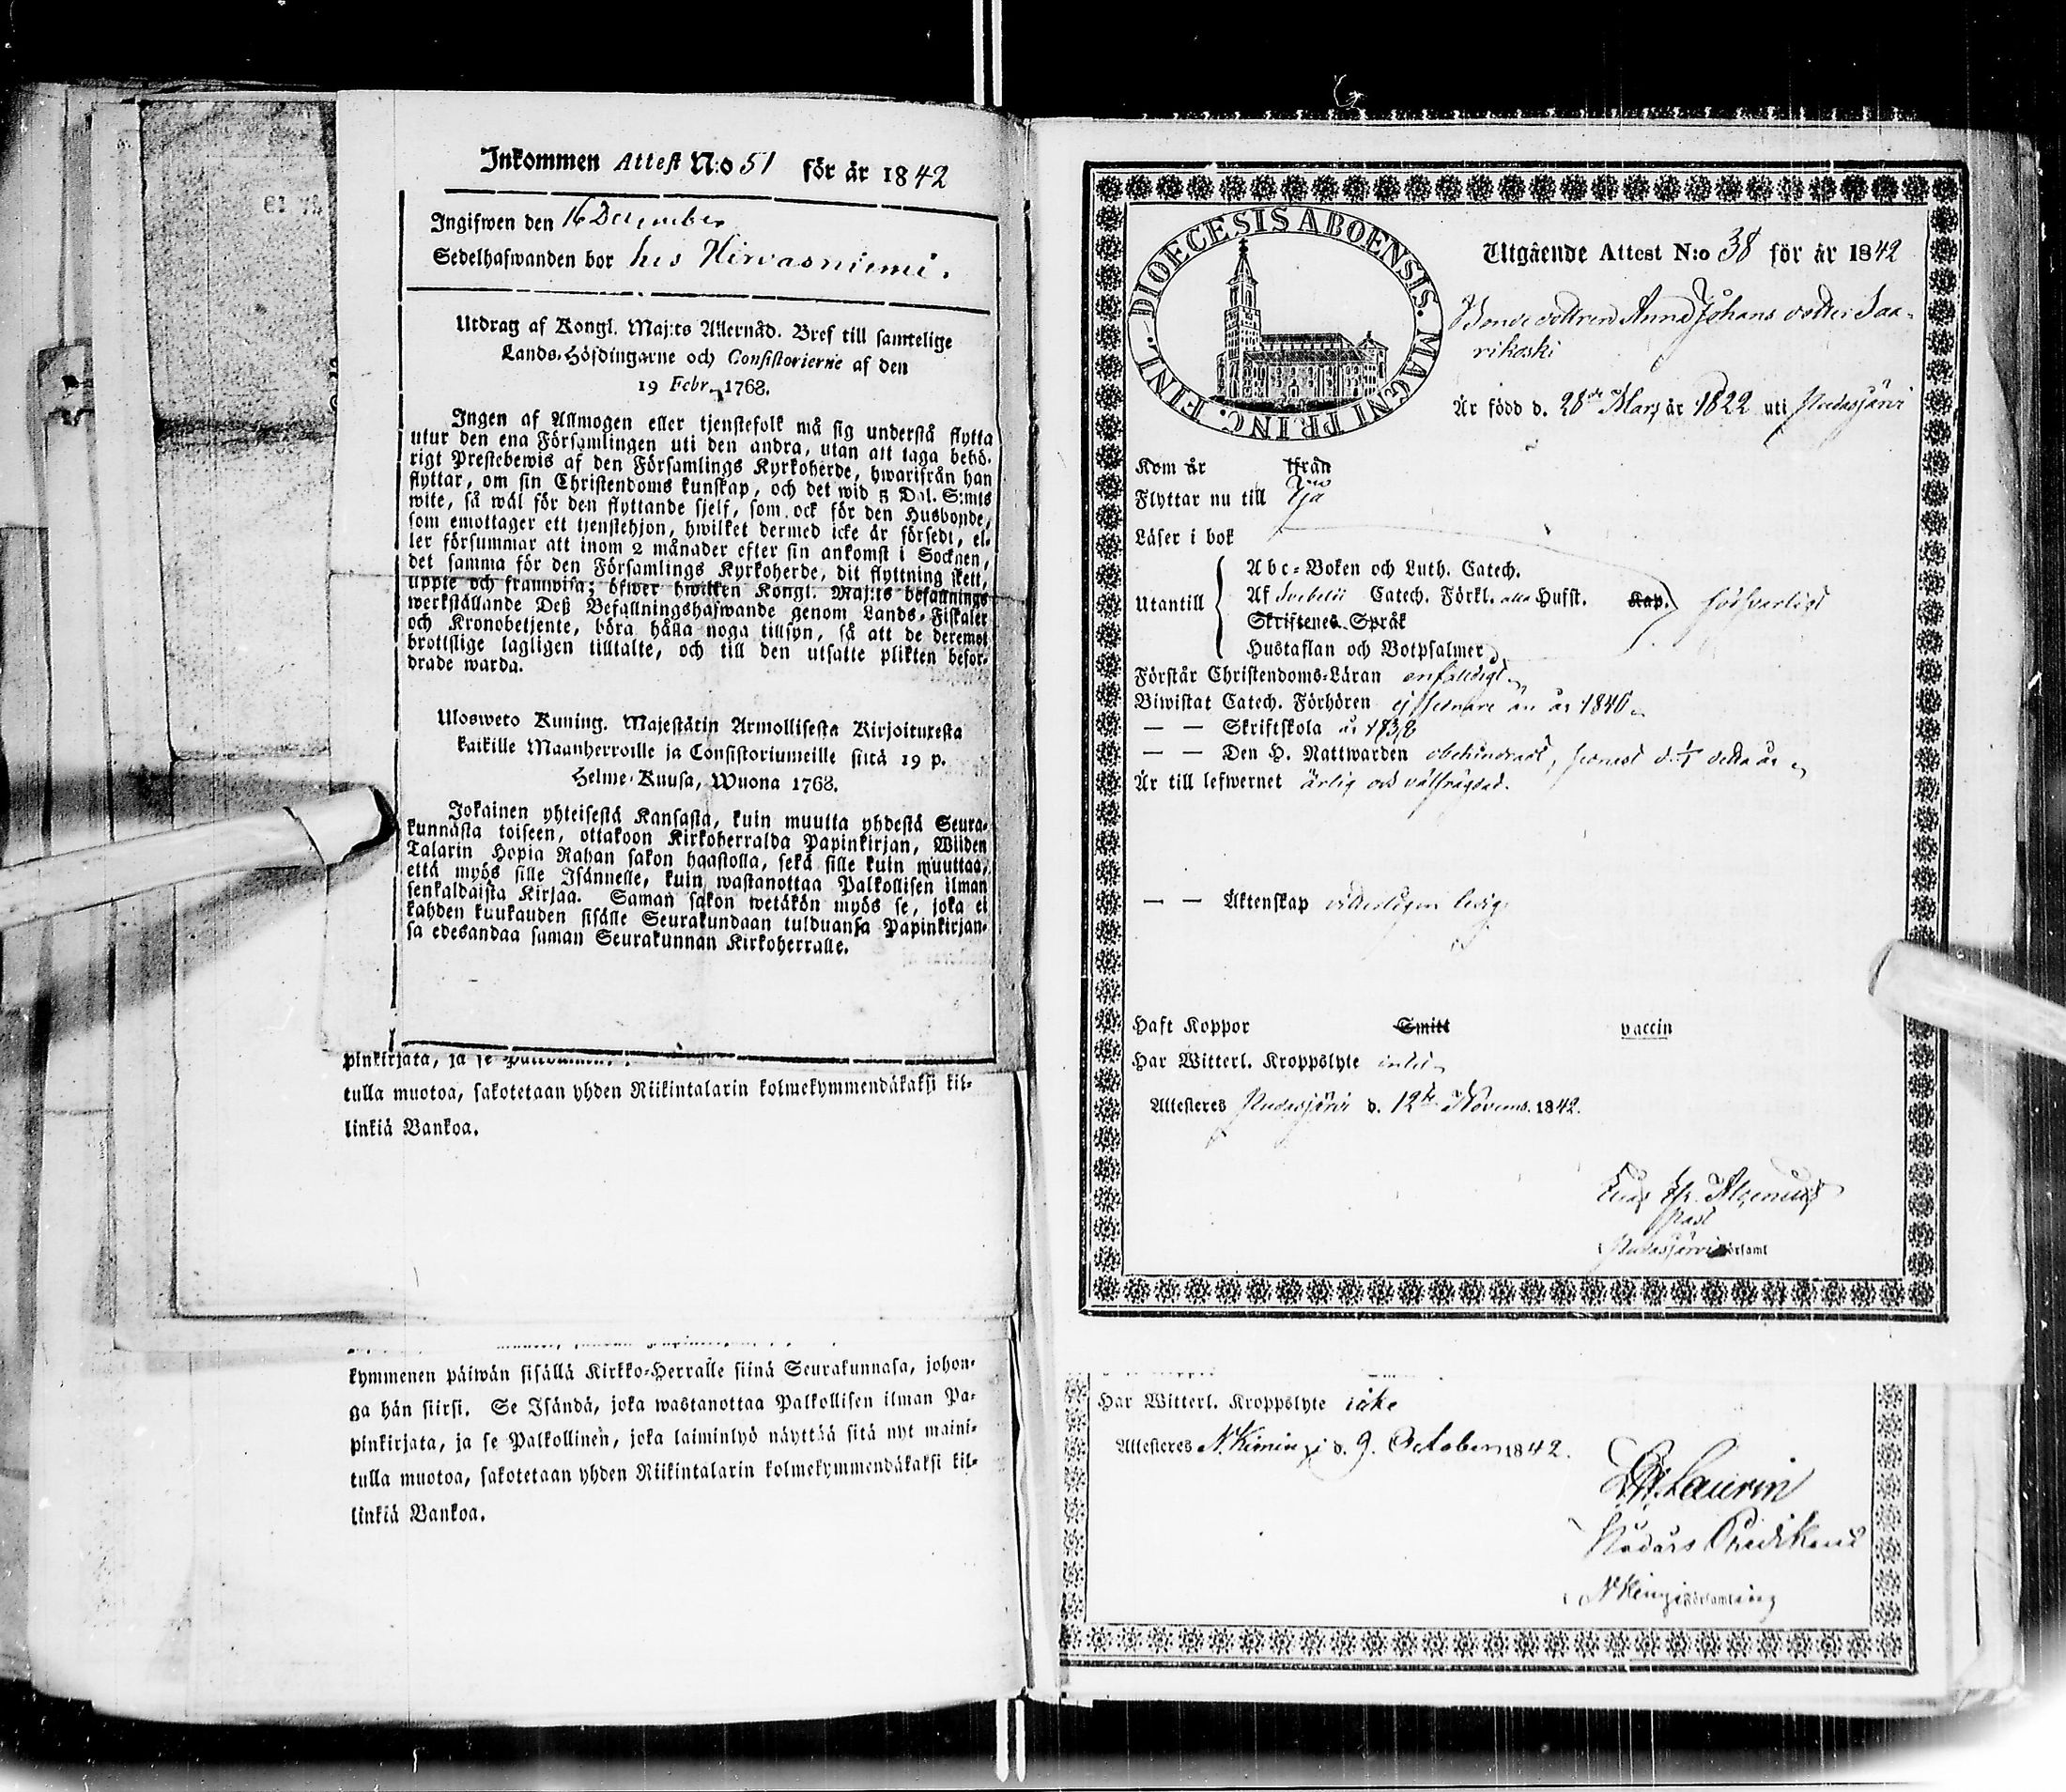 Inkommen Attest N:o 51 för år 1842
Ingifwen den 16 December
Sedelhafwanden bor hos Hirvasniemi.
Utdrag af Kongl. Maj:ts Allernåd. Bref till samtelige
Lands-Höfdingarne och Consistorierne af den
19 Febr. 1768.
Ingen af Allmogen eller tjenstefolk må sig understå flytta
utur den ena Församlingen uti den andra, utan att taga behö-
rigt Prestebewis af den Församlings Kyrkoherde, hwarifrån han
flyttar, om sin Christendoms kunskap, och det wid 5 Dal. S:mts
wite, så wäl för den flyttande sjelf, som ock för den Husbonde,
som emottager ett tjenstehjon, hwilket dermed icke är försedt, el-
ler försummar att inom 2 månader efter sin ankomst i Socknen,
det samma för den Församlings Kyrkoherde, dit flyttning skett,
uppte och framwisa; öfwer hwilken Kongl. Maj:ts befallnings
werkställande Deß Befallningshafwande genom Lands-Fiskaler
och Kronobetjente, böra hålla noga tillsyn, så att de deremot
brottslige lagligen tilltalte, och till den utsatte plikten befor-
drade warda.
Ulosweto Kuning. Majestätin Armollisesta Kirjoituxesta
kaikille Maanherroille ja Consistoriumeille siitä 19 p.
Helme-Kuusa, Wuona 1768.
Jokainen yhteisestä Kansasta, kuin muutta yhdestä Seura-
kunnasta toiseen, ottakoon Kirkoherralda Papinkirjan, Wiiden
Talarin Hopia Rahan sakon haastolla, sekä sille kuin muuttaa,
että myös sille Isännelle, kuin wastanottaa Palkollisen ilman
senkaldaista Kirjaa. Saman sakon wetäkön myös se, joka ei
kahden kuukauden sisälle Seurakundaan tulduansa Papinkirjan-
sa edesandaa saman Seurakunnan Kirkoherralle.
pinkirjata, ja se
tulla muotoa, sakotetaan yhden Riikintalarin kolmekymmendäkaksi kil-
linkiä Bankoa.
kymmenen päiwän sisällä Kirkko-Herralle siinä Seurakunnasa, johon-
ga hän siirsi. Se Isändä, joka wastanottaa Palkollisen ilman Pa-
pinkirjata, ja se Palkollinen, joka laiminlyö näyttää sitä nyt maini-
tulla muotoa, sakotetaan yhden Riikintalarin kolmekymmendäkaksi kil-
linkiä Bankoa.
DIOECESIS ABOENSIS. MAGNI PRINC. FINL.
Utgående Attest N:o 38 för år 1842
Bonde dottren Anna Johans dotter Saa-
rikoski
Är född d. 28de Mars år 1822 uti Pudasjärvi
Kom år ifrån
Flyttar nu till Ijo
Läser i bok
Abc-Boken och Luth. Catech.
Utantill Af Svebelii Catech. Förkl. alla Hufst. Kap. försvarligt
Skriftenes Språk
Hustaflan och Botpsalmer
Förstår Christendoms-Läran enfaldigt
Biwistat Catech. Förhören ej sednare än år 1840
— — Skriftskola år 1838
— — Den H. Nattwarden obehindradt, senast d. detta år
Är till lefwernet ärlig och välfrägdad.
— — Äktenskap vitterligen ledig
Haft Koppor Smitt vaccin
Har Witterl. Kroppslyte intet
Attesteres Pudasjärvi d. 12te Novemb. 1842.
Past
i Pudasjärvi Församl
Har Witterl. Kroppslyte icke
Attesteres N. Kiminge d. 9. October 1842.
Laurin
i N Kiminge Församling